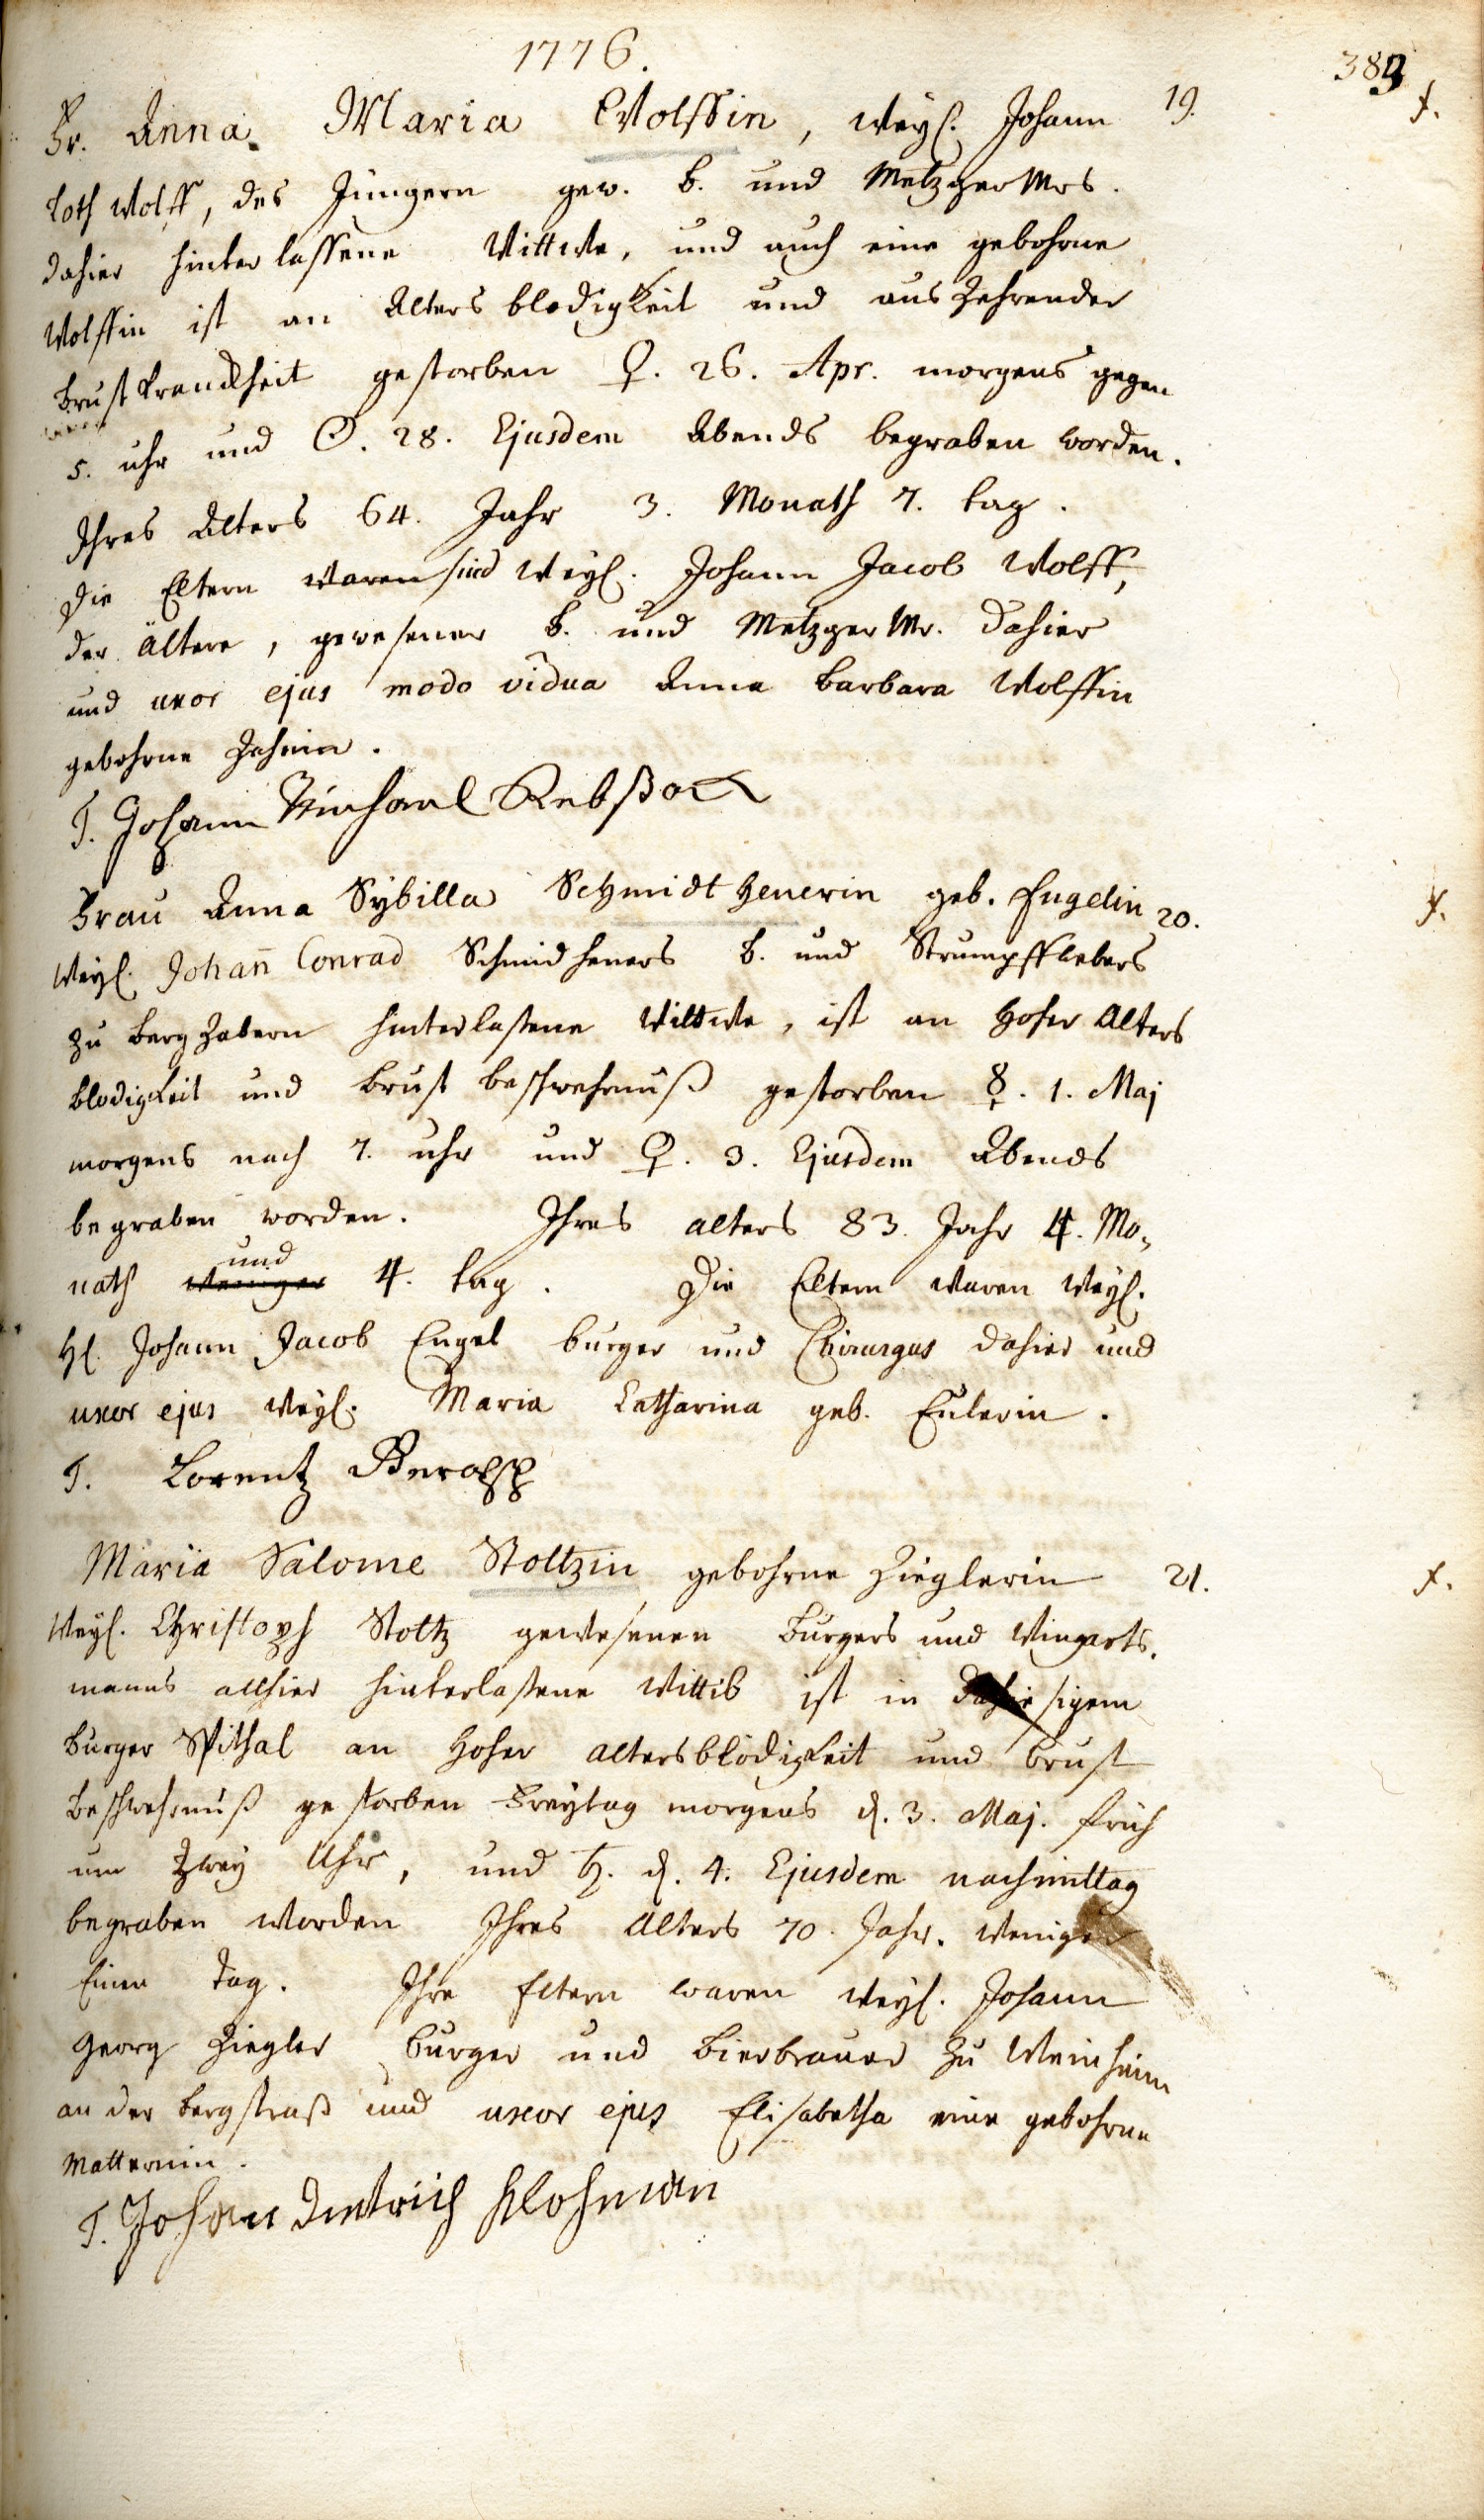 1776.
389
Fr. Anna Maria Wolffin, weyl. Johann 19. †.
Loth Wolff, des Jüngern gew. b. und Metzger Mrs.
dahier hinterlassene Wittwe, und auch eine gebohrne
Wolffin ist an Alters blödigkeit und auszehrender
Brust kranckheit gestorben ♀. 26. Apr. morgens gegen
5. uhr und ☉. 28. Ejusdem Abends begraben worden.
Ihres Alters 64. Jahr 3. Monath 7. tag.
Die Eltern waren sind weyl. Johann Jacob Wolff,
der ältere, gewesener b. und Metzger Mr. dahier
und uxor ejus modo vidua Anna Barbara Wolffin
gebohrne
T. Johann Michael Rebstock
Frau Anna Sybilla Schmidthenerin geb. Engelin 20. †.
weyl. Johan̄ Conrad Schmidheners b. und Strumpffwebers
zu Bergzabern hinterlaßene Wittwe, ist an hoher Alters
blödigkeit und Brust beschwehrnuß gestorben ☿. 1. Maj
morgens nach 7. uhr und ♀. 3. Ejusdem Abends
begraben worden. Ihres alters 83. Jahr 4. Mo-
nath weniger und 4. tag. Die Eltern waren weyl.
H. Johann Jacob Engel burger und Chirurgus dahier und
uxor ejus weyl. Maria Catharina geb. Eulerin.
T. Lorentz
Maria Salome Stoltzin gebohrne Zieglerin 21. †.
weyl. Christoph Stoltz gewesenen Burgers und Wingerts-
manns allhier hinterlaßene Wittib ist in dahiesigem
Burger Spithal an hoher altersblödigkeit und Brust
beschwehrnuß gestorben Freytag morgens d. 3. Maj. früh
um zwey Uhr, und ♄. d. 4. Ejusdem nachmittag
begraben worden Ihres Alters 70. Jahr. weniger
Einen Tag. Ihre Eltern waren weyl. Johann
Georg Ziegler Burger und Bierbrauer zu Weinheim
an der Bergstraß und uxor ejus Elisabetha eine gebohrne
Matternin.
T. Johan Dietrich